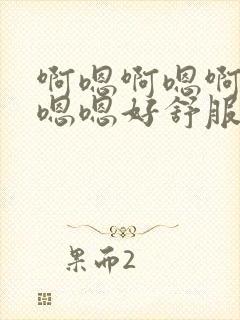 啊嗯啊嗯啊
嗯嗯好舒服
果而2